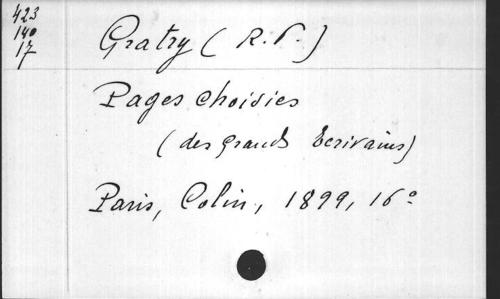 423
140
17
Gratry (R. P.)
Pages choisies
(des grands Ecrivains)
Paris, Colin, 1899, 16°